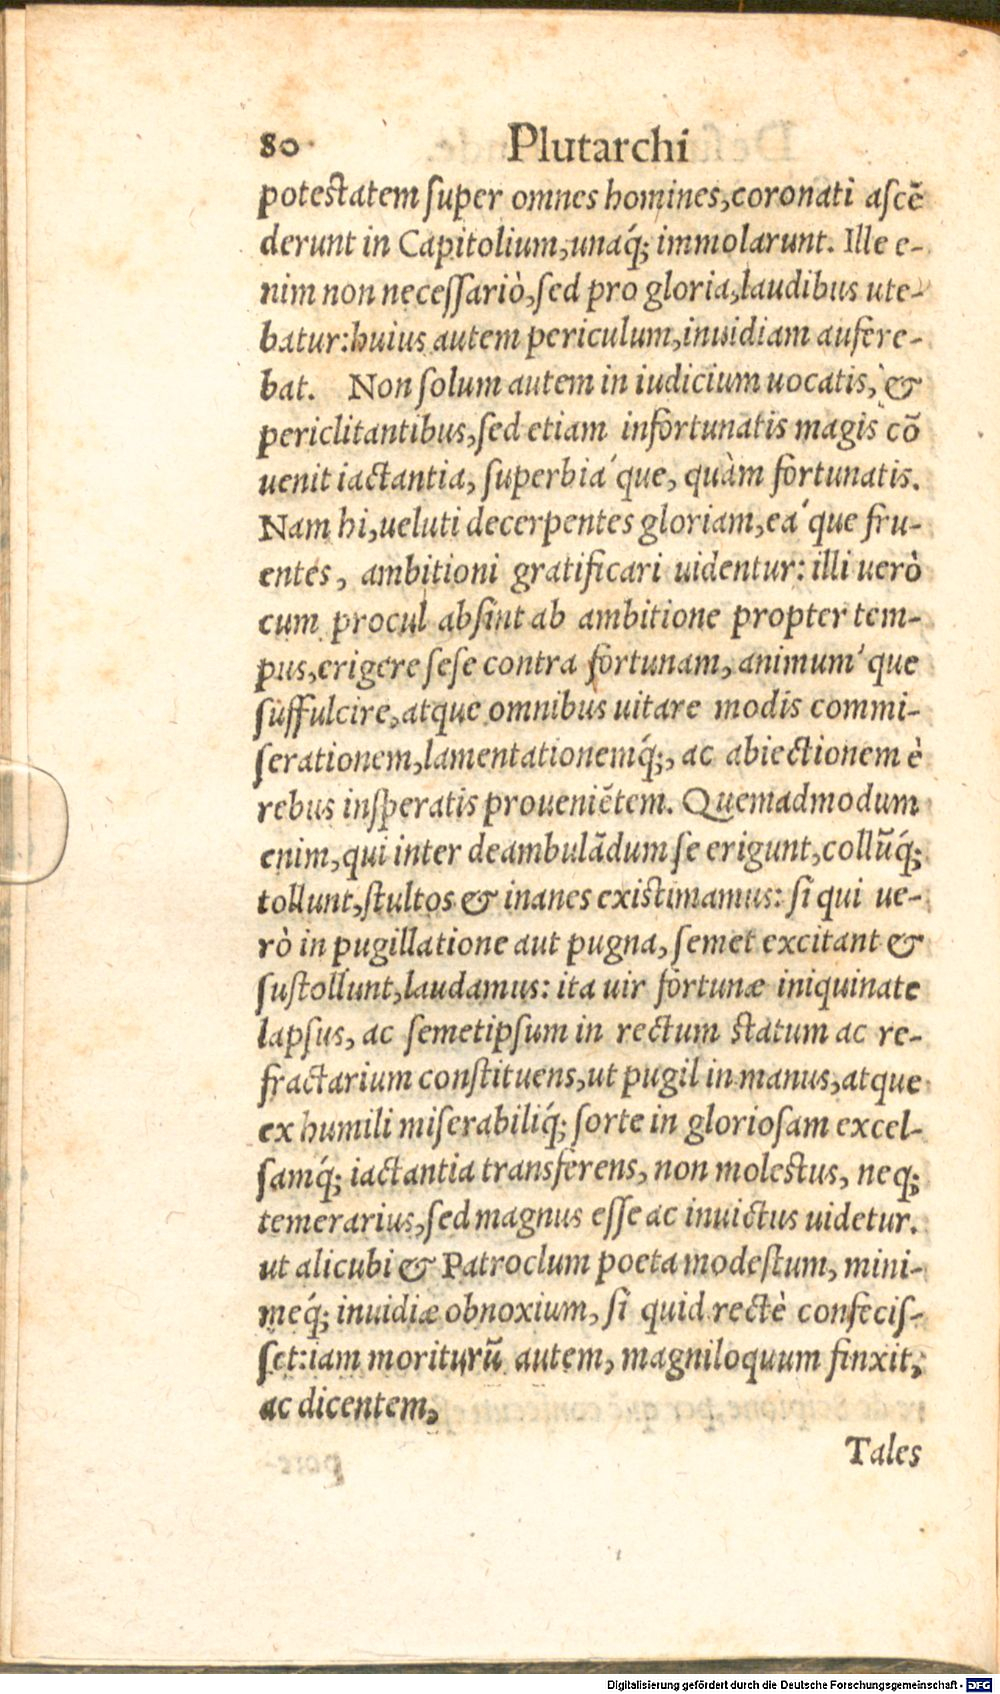 80 Plutarchi
potestatem ſuper omnes homines, coronati aſcẽ
derunt in Capitolium, unaq́; immolarunt. Ille e-
nim non neceſſariò, ſed pro gloria, laudibus ute-
batur: huius autem periculum, inuidiam aufere-
bat. Non ſolum autem in iudicium uocatis, &
periclitantibus, ſed etiam infortunatis magis cõ
uenit iactantia, ſuperbia´que, quàm fortunatis.
Nam hi, ueluti decerpentes gloriam, ea´que fru-
entes, ambitioni gratificari uidentur: illi uerò
cum procul abſint ab ambitione propter tem-
pus, erigere ſeſe contra fortunam, animum´que
ſuffulcire, atque omnibus uitare modis commi-
ſerationem, lamentationemq́;, ac abiectionem è
rebus inſperatis proueniẽtem. Quemadmodum
enim, qui inter deambulãdum ſe erigunt, collũq́;
tollunt, ſtultos & inanes existimamus: ſi qui ue-
rò in pugillatione aut pugna, ſemet excitant &
ſuſtollunt, laudamus: ita uir fortunæ iniquinate
lapſus, ac ſemetipſum in rectum statum ac re-
fractarium conſtituens, ut pugil in manus, atque
ex humili miſerabiliq́; ſorte in glorioſam excel-
ſamq́; iactantia transferens, non molestus, neq;
temerarius, ſed magnus eſſe ac inuictus uidetur.
ut alicubi & Patroclum poeta modeſtum, mini-
meq́; inuidiæ obnoxium, ſi quid rectè confeciſ-
ſet: iam moriturũ autem, magniloquum finxit,
ac dicentem,
Tales
Digitalisierung gefördert durch die Deutsche Forschungsgemeinschaft - DFG